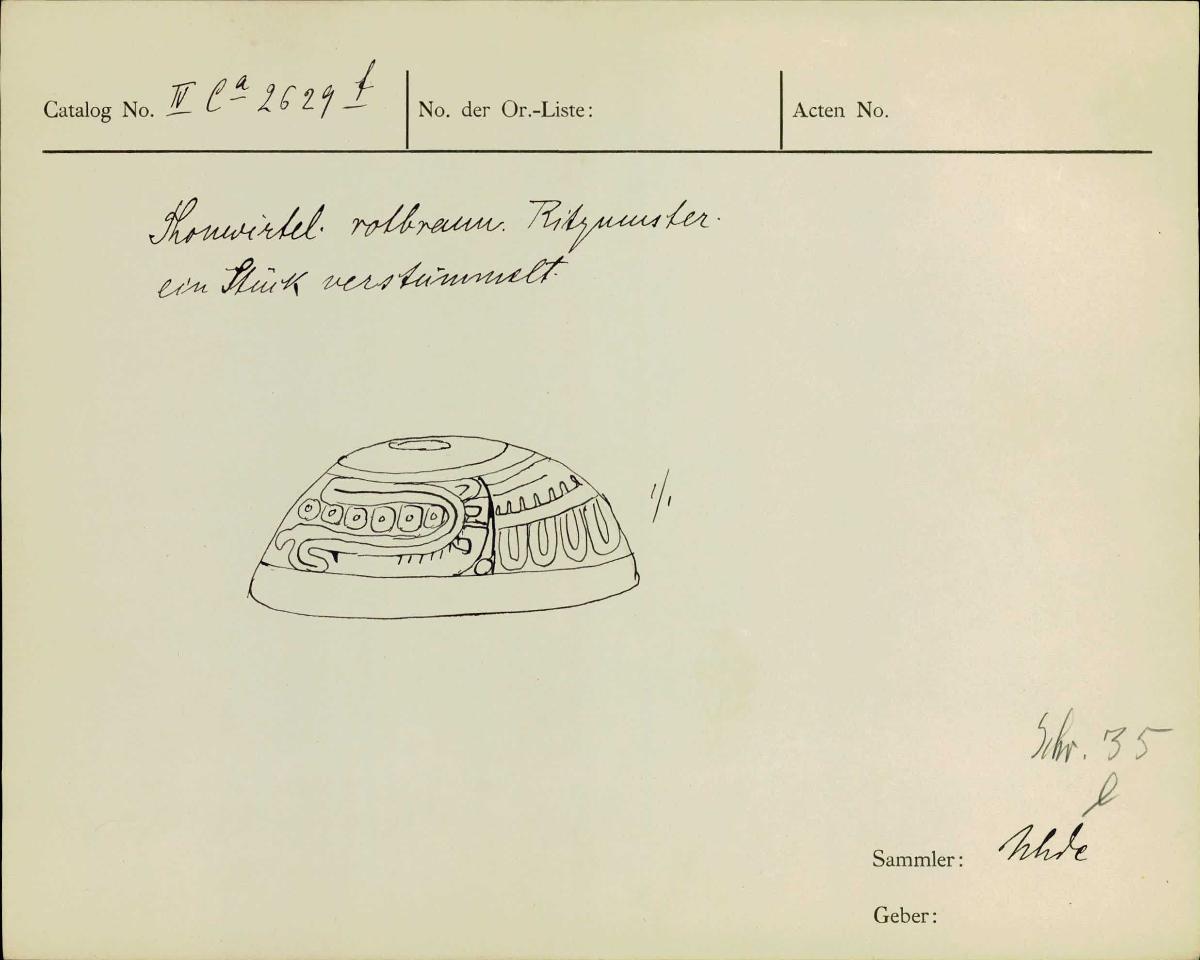 Catalog No. IV Ca 2629 f
No. der Or.-Liste:
Acten No.
Thonwirtel. rotbraun. Ritzmuster.
ein Stück verstümmelt.
1/1
Schr. 35
l
Sammler: Uhde
Geber: